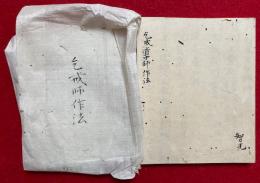 乞戒師作法
乞戒導師作法
智光